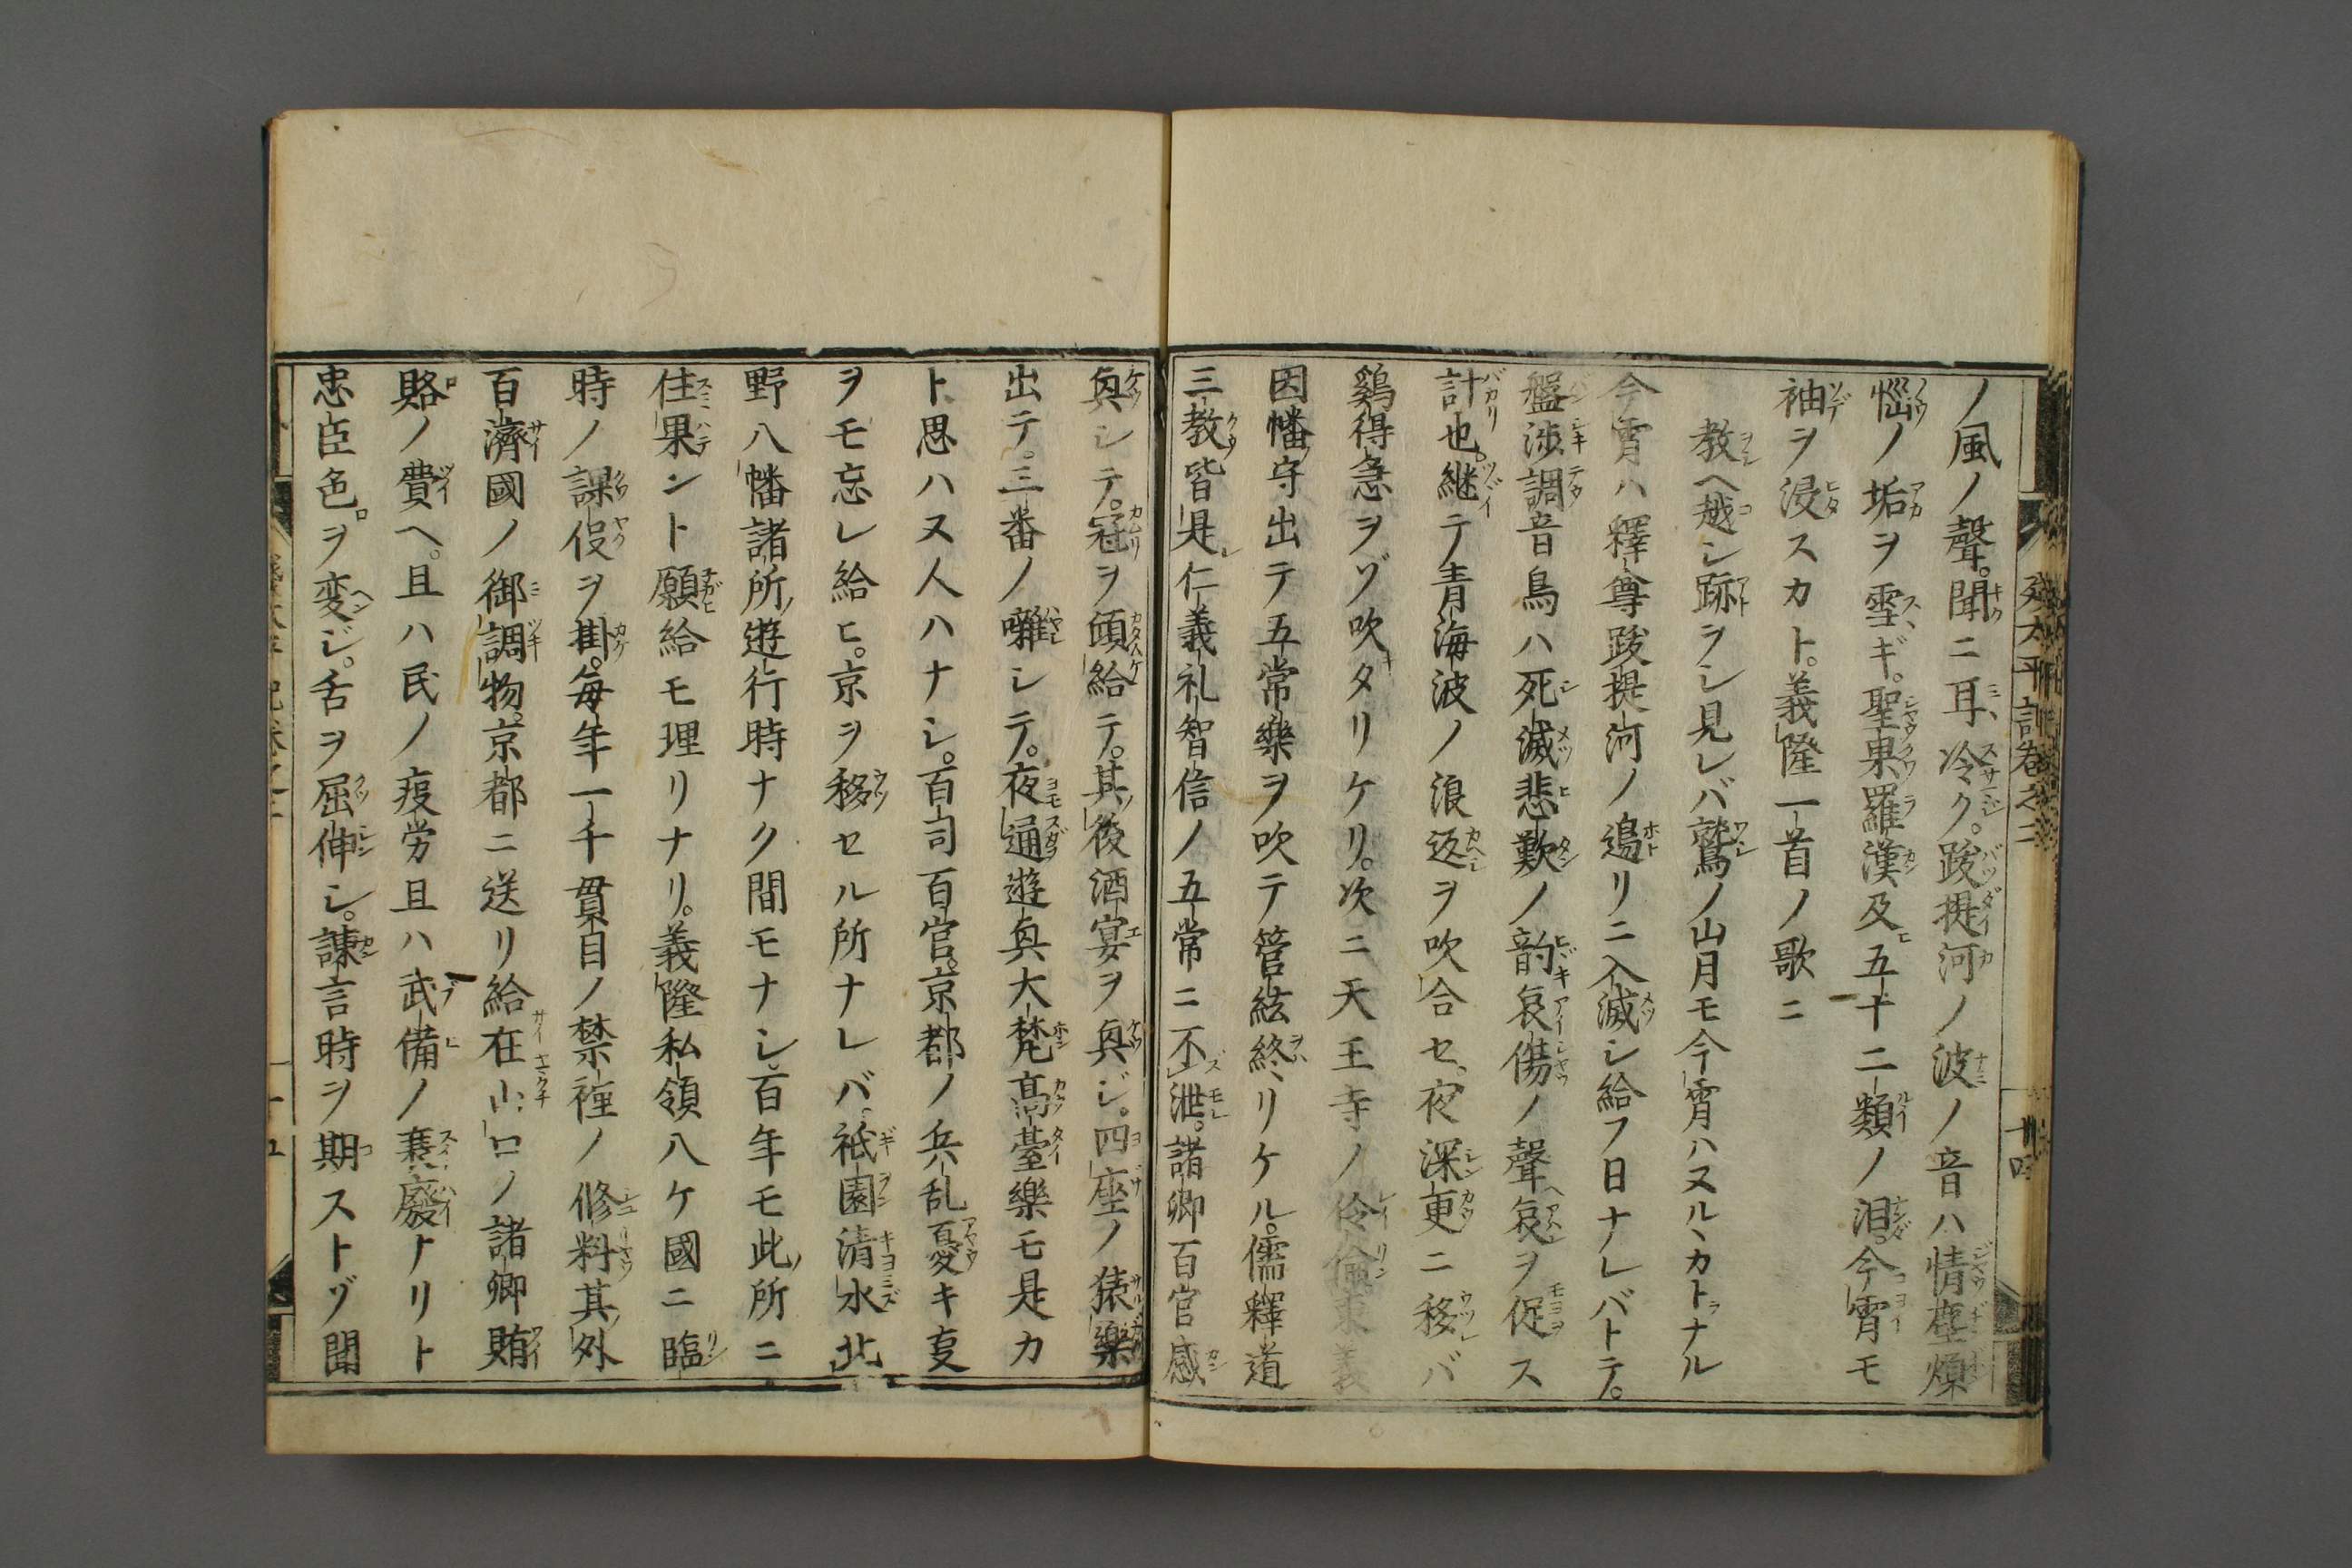 ノ風ノ聲。聞ニ耳冷ク。跋提河ノ波ノ音ハ情塵煩
惱ノ垢ヲ雪ギ。聖果羅漢及五十二類ノ泪。今霄モ
袖ヲ浸スカト。義隆一首ノ歌ニ
教ヘ越シ跡ヲシ見レバ鷲ノ山月モ今霄ハヌルヽカトナル
今霄ハ釋尊跋提河ノ邉リニ入滅シ給フ日ナレバトテ。
盤渉調音鳥ハ死滅悲歎ノ韵哀傷ノ聲哀ヲ促ス
計也。継テ青海波ノ浪返ヲ吹合セ。夜深更ニ移バ
鷄得急ヲゾ吹タリケリ。次ニ天王寺ノ伶倫東義
因幡守出テ五常樂ヲ吹テ管絃終リケル。儒釋道
三教皆是仁義礼智信ノ五常ニ不泄。諸卿百官感
興シテ。冠ヲ傾給テ。其後酒宴ヲ興ジ。四座ノ猿樂
出テ。三番ノ囃シテ。夜通遊興大梵高臺樂モ是カ
ト思ハヌ人ハナシ。百司百官。京都ノ兵乱憂キ叓
ヲモ忘レ給ヒ。京ヲ移セル所ナレバ。祇園清水北
野八幡諸所ノ遊行時ナク間モナシ。百年モ此所ニ
住果ント願給モ理リナリ。義隆私領八ケ國ニ臨
時ノ課役ヲ掛。毎年一千貫目ノ禁裡ノ修料其外
百濟國ノ御調物。京都ニ送リ給在山口ノ諸卿賄
賂ノ費ヘ。且ハ民ノ疲労且ハ武備ノ衰廢ナリト
忠臣色。ヲ変ジ。舌ヲ屈伸シ。諫言時ヲ期ストゾ聞